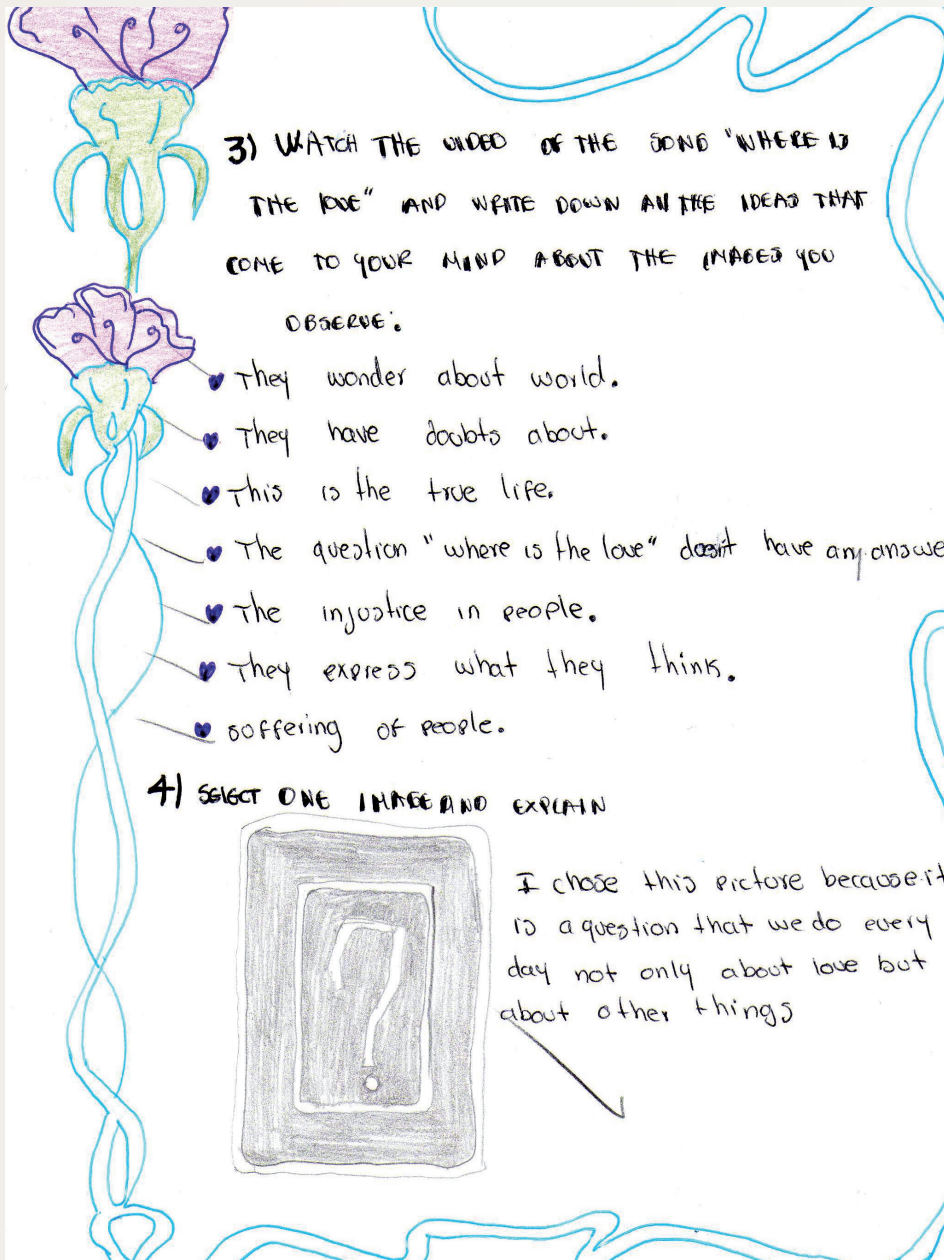 3) WATCH THE VIDEO OF THE SONG "WHERE IS
THE LOVE" AND WRITE DOWN All THE IDEAS THAT
COME TO YOUR MIND ABOUT THE IMAGES YOU
OBSERVE:
They wonder about world.
They have doubts about.
This is the true life.
The question "where is the love" doesn't have any answe
The injustice in people.
They express what they think.
soffering of people.
4) SELECT ONE IMAGE AND EXPLAIN
?
I chose this picture because it
is a question that we do every
day not only about love but
about other things